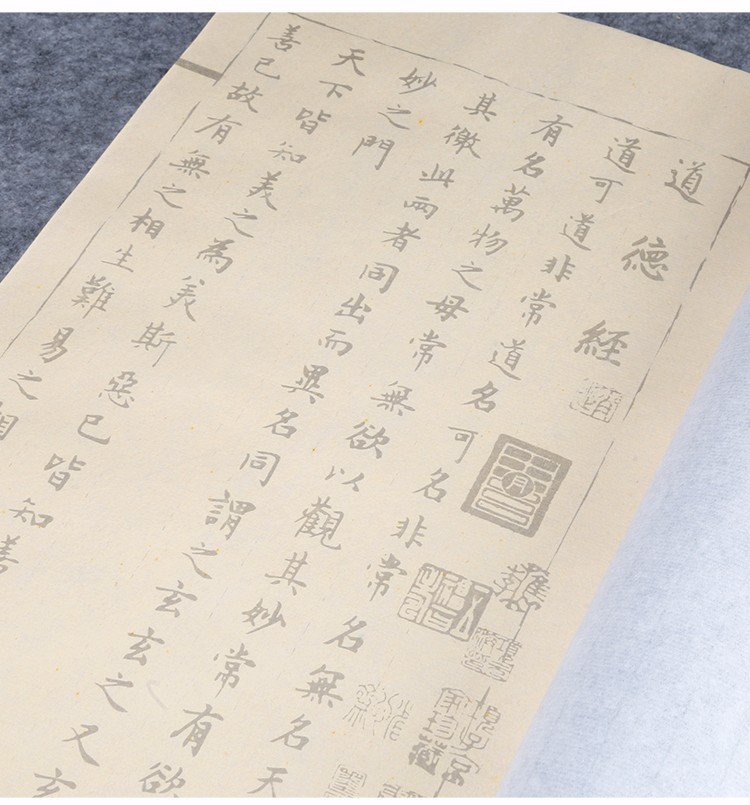 道德經
道可道非常道名可名非常名無名天
有名萬物之母常無欲以觀其妙常有欲
其徼此兩者同出而異名同謂之玄玄之又玄
妙之門
天下皆知美之為美斯惡已皆知善
善已故有無之相生難易之相